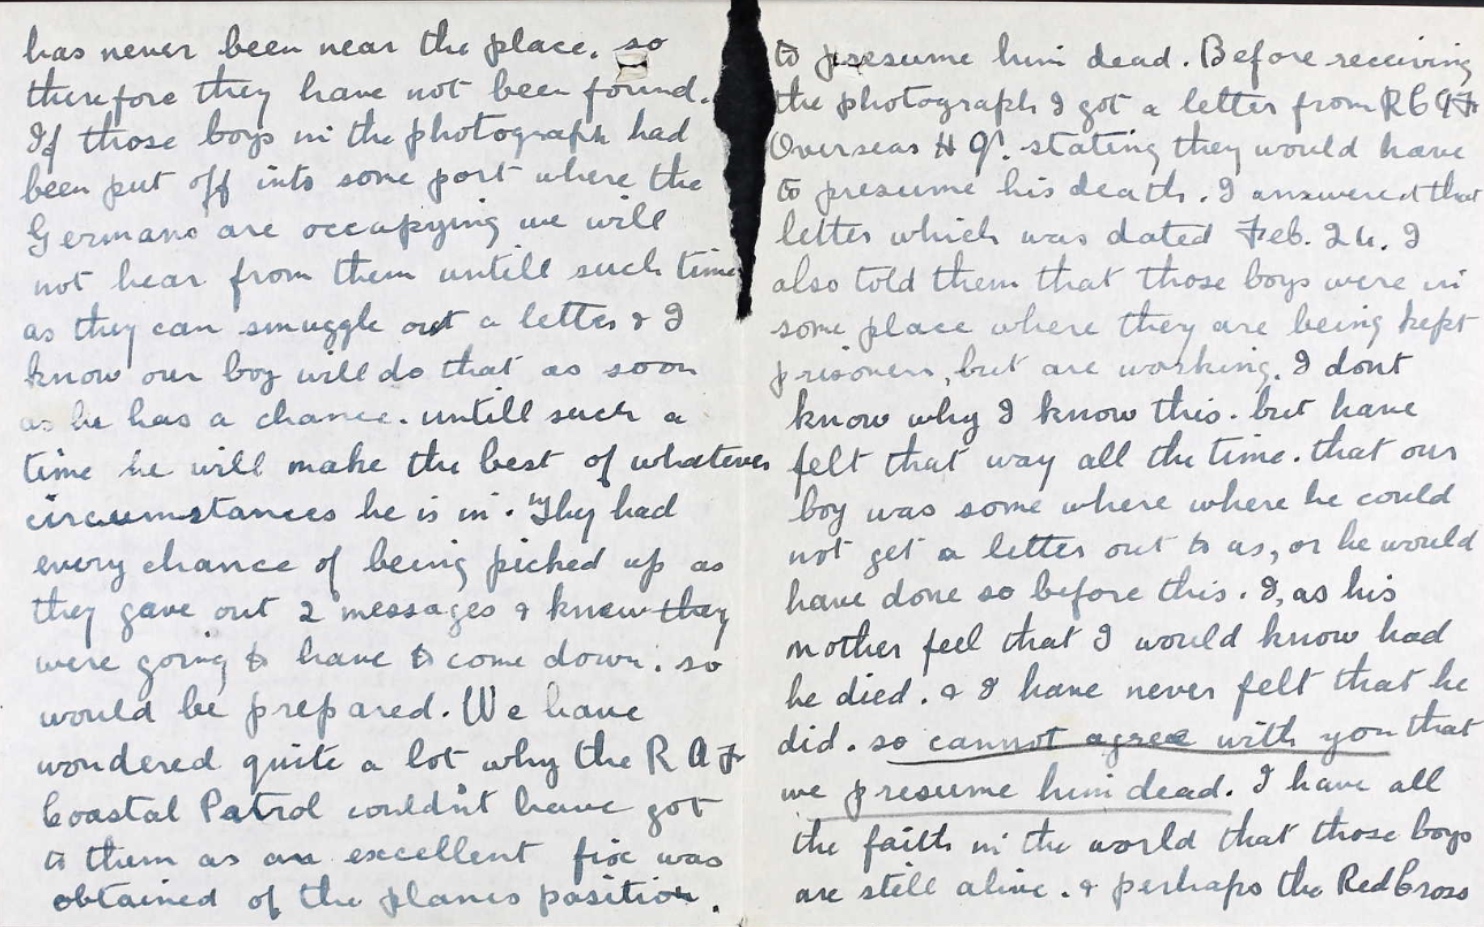 has never been near the place. so
therefore they have not been found.
If those boys in the photograph had
been put off into some port where the
Germans are occupying we will
not hear from them untill such time
as they can smuggle out a letter & I
know our boy will do that as soon
as he has a chance. untill such a
time he will make the best of whatever
circumstances he is in. They had
every chance of being picked up as
they gave out 2 messages & knew they
were going to have to come down. so
would be prepared. We have
wondered quite a lot why the R A F
Coastal Patrol couldn't have got
to them as an excellent fix was
obtained of the planes position.
to presume him dead. Before receiving
the photograph I got a letter from R C A F
Overseas H Q. stating they would have
to presume his death. I answered that
letter which was dated Feb. 24. I
also told them that those boys were in
some place where they are being kept
prisoners, but are working. I dont
know why I know this. but have
felt that way all the time. that our
boy was some where where he could
not get a letter out to us, or he would
have done so before this. I, as his
mother feel that I would know had
he died. & I have never felt that he
did. so cannot agree with you that
we presume him dead. I have all
the faith in the world that those boys
are still alive. & perhaps the Red Cross